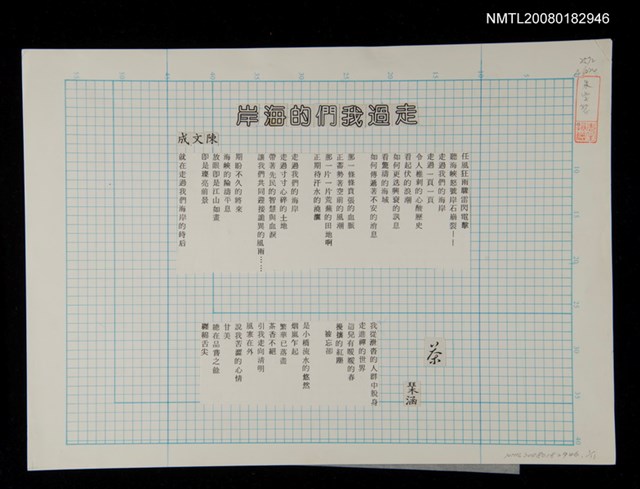 NMTL20080182946
走過我們的海岸
陳文成
任風狂雨驟雷閃電擊
聽海峽怒號岸石崩裂——
走過我們的海岸
走過一頁一頁
令人椎刺的心酸歷史
看起伏的浪潮
如何更迭興衰的訊息
看驚濤的海域
如何傳遞著不安的消息
那一條條賁張的血脈
正蓄勢著空前的風潮
那一片一片荒蕪的田地啊
正期待汗水的澆灌
走過我們的海岸
走過寸寸心碎的土地
帶著先民的智慧與血淚
讓我們共同迎接詭異的風雨……
期盼不久的將來
海峽的陰霾平息
放眼即是江山如畫
即是燦亮前景
就在走過我們海岸的時后
茶
琹涵
我從激沓的人群中脫身
走進禪的世界
這兒有暖暖的春
慢燻的紅爐
被忘卻
是小橋流水的悠然
烟嵐乍起
繁華已落盡
茶香不絕
引我走向清明
風塵在外
說我苦澀的心情
甘美
總在品嘗之餘
纏綿舌尖